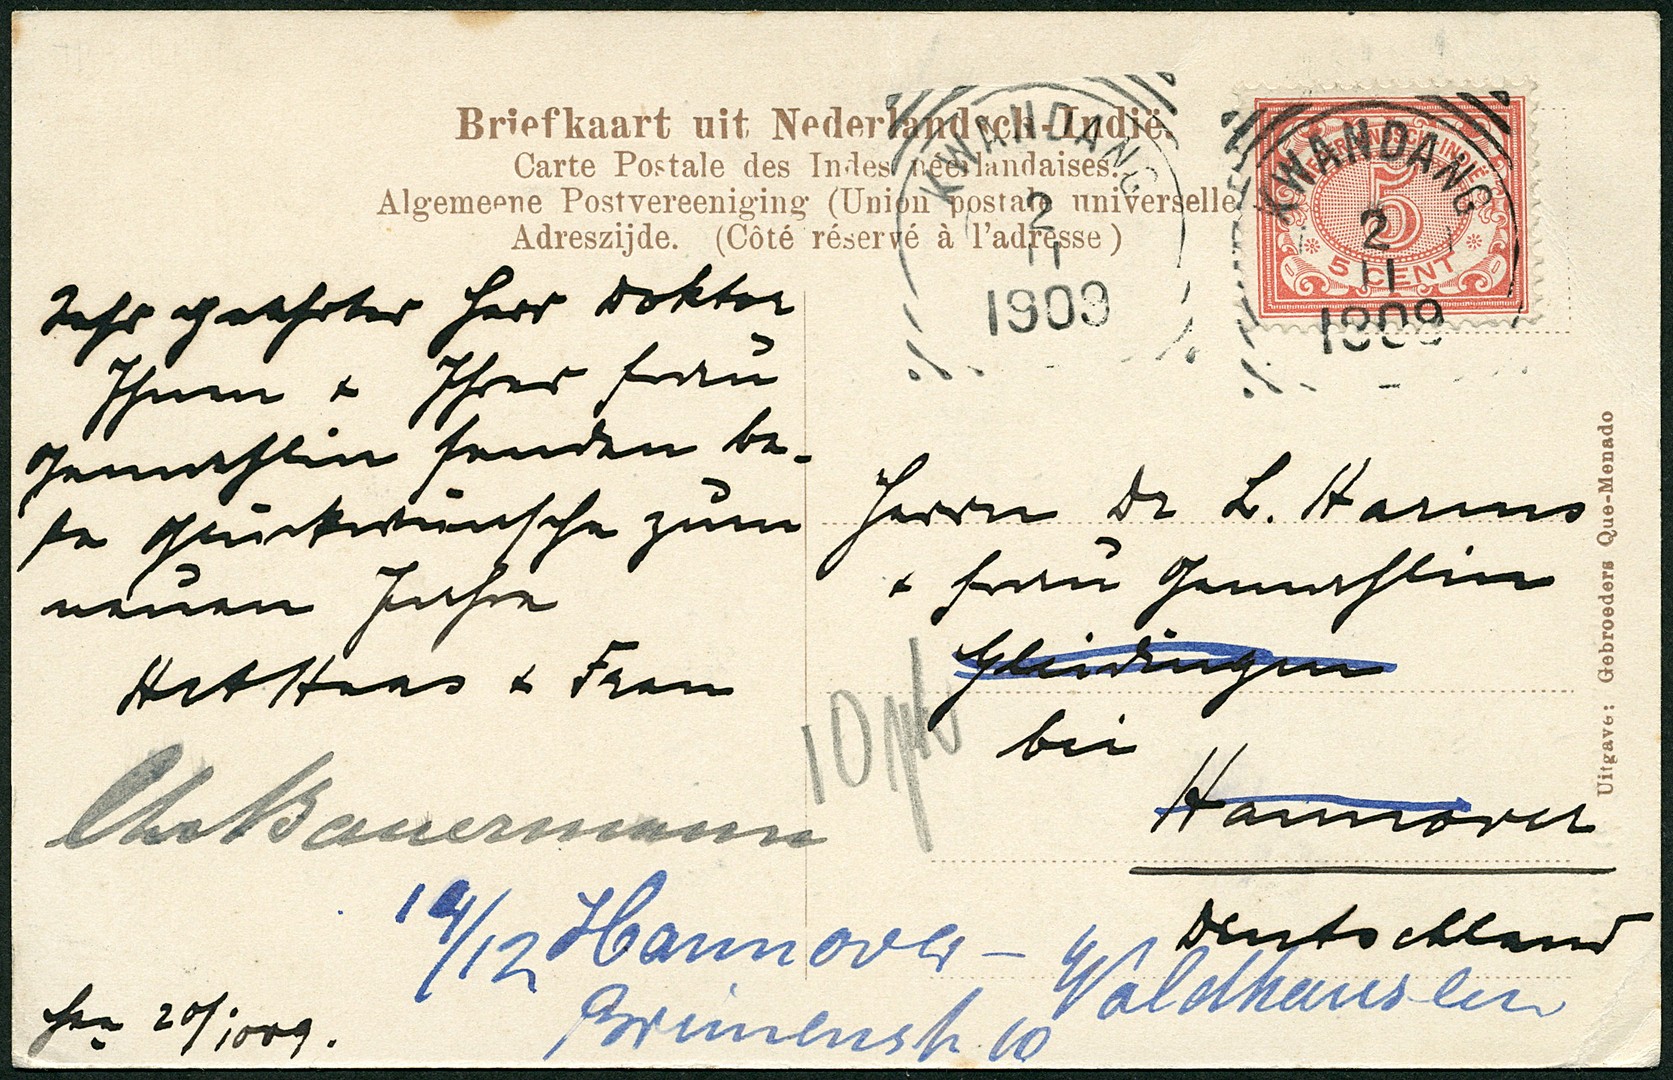 Briefkaart uit Nederlandsch-Indië.
Carte Postale des Indes néerlandaises.
Algemeene Postvereeniging (Union postale universelle
Adreszijde. (Côté réservé à l'adresse)
KWANDANG
2
11
1909
NEDERLANDSCH-INDIË
5
5 CENT
KWANDANG
2
11
1909
Sehr geehrter Herr Doktor
Ihnen & Ihrer Frau
Gemahlin senden be-
ste Glückwünsche zum
neuen Jahre
Haas & Frau
Bauermann
20/1009.
Herrn Dr L. Harms
& Frau Gemahlin
Gleidingen
bei
Hannover
Deutschland
10
/12 Hannover - Waldhausen
10
Uitgave: Gebroeders Que-Menado